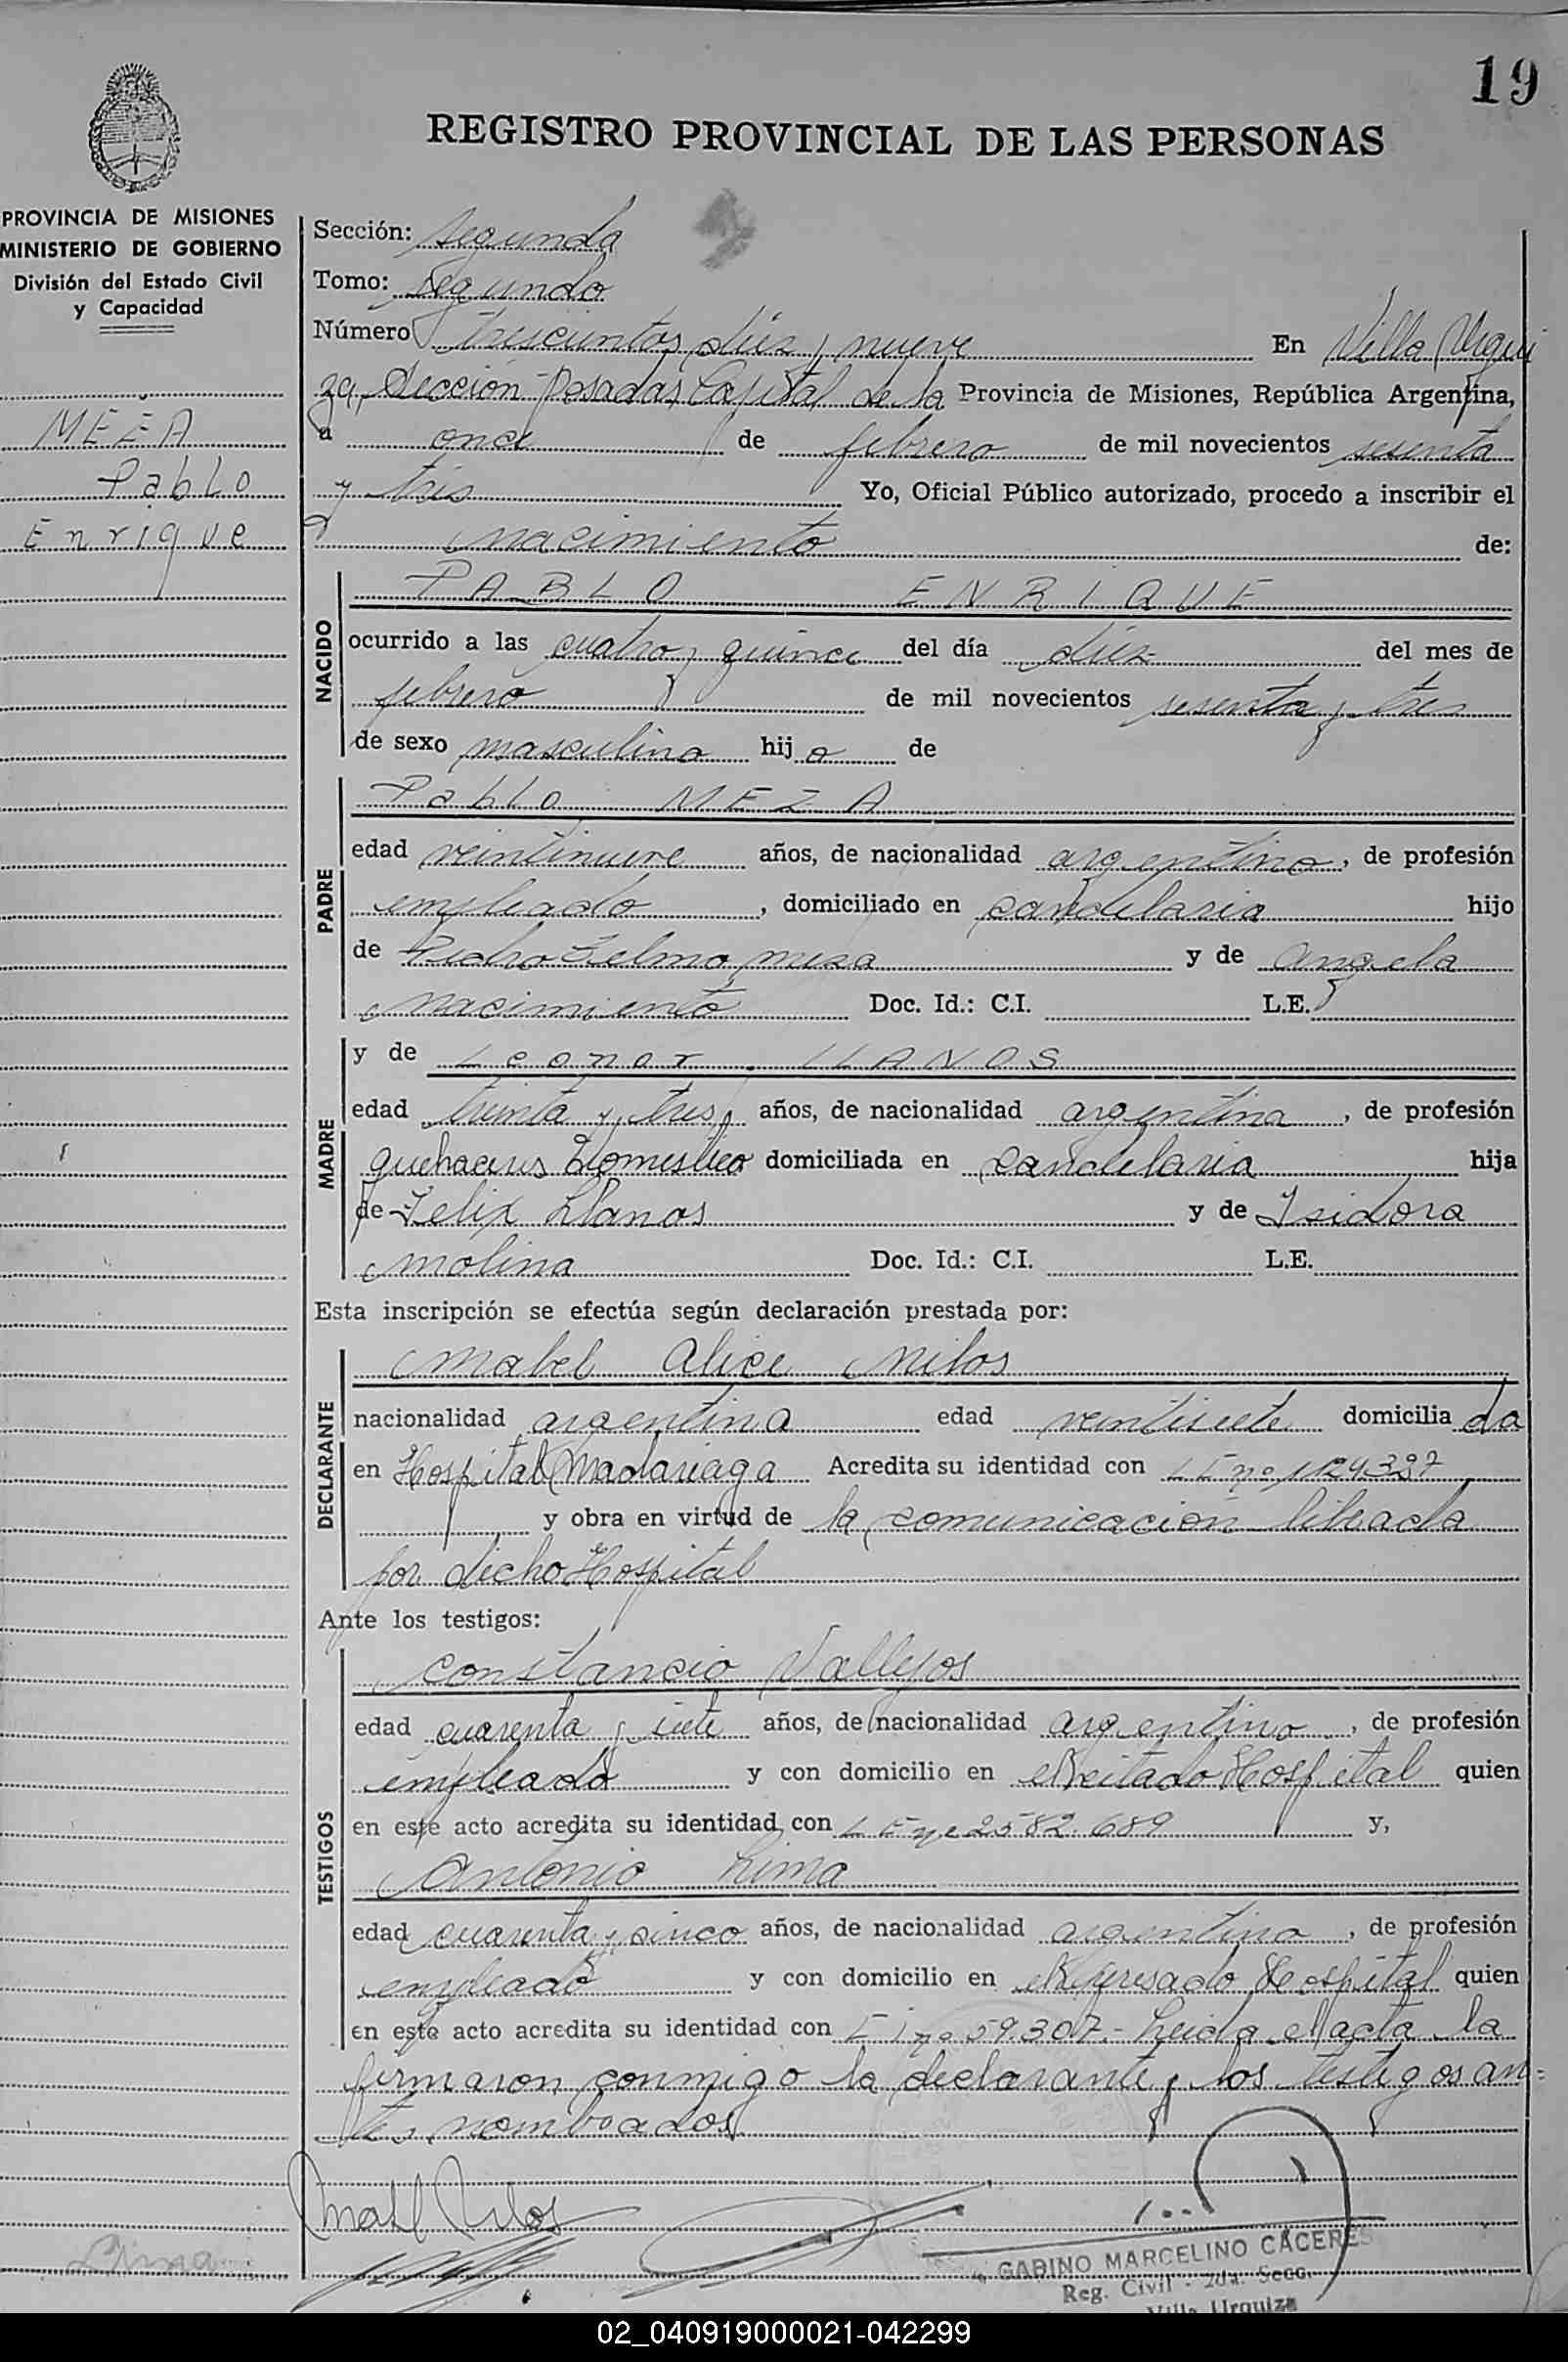 19
REGISTRO PROVINCIAL DE LAS PERSONAS
PROVINCIA DE MISIONES
MINISTERIO DE GOBIERNO
División del Estado Civil
y Capacidad
MEZA
Pablo
Enrique
Sección: segunda
Tomo: segundo
Número trescientos diez y nueve En Villa Urqui
za, Sección Posadas Capital de la Provincia de Misiones, República Argentina,
a once de febrero de mil novecientos sesenta
y tres Yo, Oficial Público autorizado, procedo a inscribir el
nacimiento de:
NACIDO
PABLO ENRIQUE
ocurrido a las cuatro y quince del día diez del mes de
febrero de mil novecientos sesenta y tres
de sexo masculino hijo de
PADRE
Pablo MEZA
edad veintinueve años, de nacionalidad argentino, de profesión
empleado, domiciliado en candelaria hijo
de Pedro Telmo meza y de angela
nacimiento Doc. Id.: C.I. L.E.
MADRE
y de Leonor LLANOS
edad treinta y tres años, de nacionalidad argentina, de profesión
quehaceres Domestico domiciliada en candelaria hija
de Felix Llanos y de Isidora
molina Doc. Id.: C.I. L.E.
Esta inscripción se efectúa según declaración prestada por:
DECLARANTE
Mabel Alice Milos
nacionalidad argentina edad veintisiete domiciliada
en Hospital Madariaga Acredita su identidad con
y obra en virtud de la comunicación
por dicho Hospital
Ante los testigos:
TESTIGOS
Constancio Vallejos
edad cuarenta y siete años, de nacionalidad argentino, de profesión
empleado y con domicilio en el citado Hospital quien
en este acto acredita su identidad con L E nº 2582.689 y,
Antonio Lima
edad cuarenta y cinco años, de nacionalidad argentino, de profesión
empleado y con domicilio en el expresado Hospital quien
en este acto acredita su identidad con nº 59.307- Leida el acta la
firmaron conmigo la declarante y los testigos an=
tes nombrados
Mabel Milos
Lima
GABINO MARCELINO CACERES
Reg. Civil - 2da. Secc.
Villa Urquiza
02_040919000021-042299